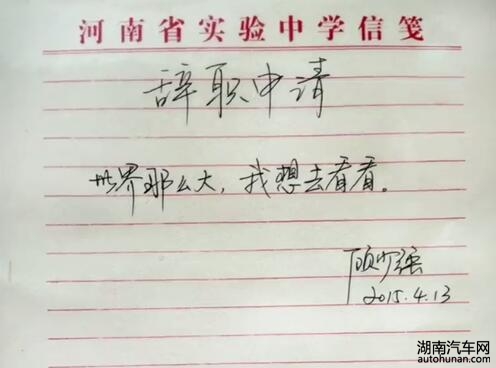 河南省实验中学信笺
辞职申请
世界那么大，我想去看看。
顾少强
2015.4.13
湖南汽车网
autohunan.com